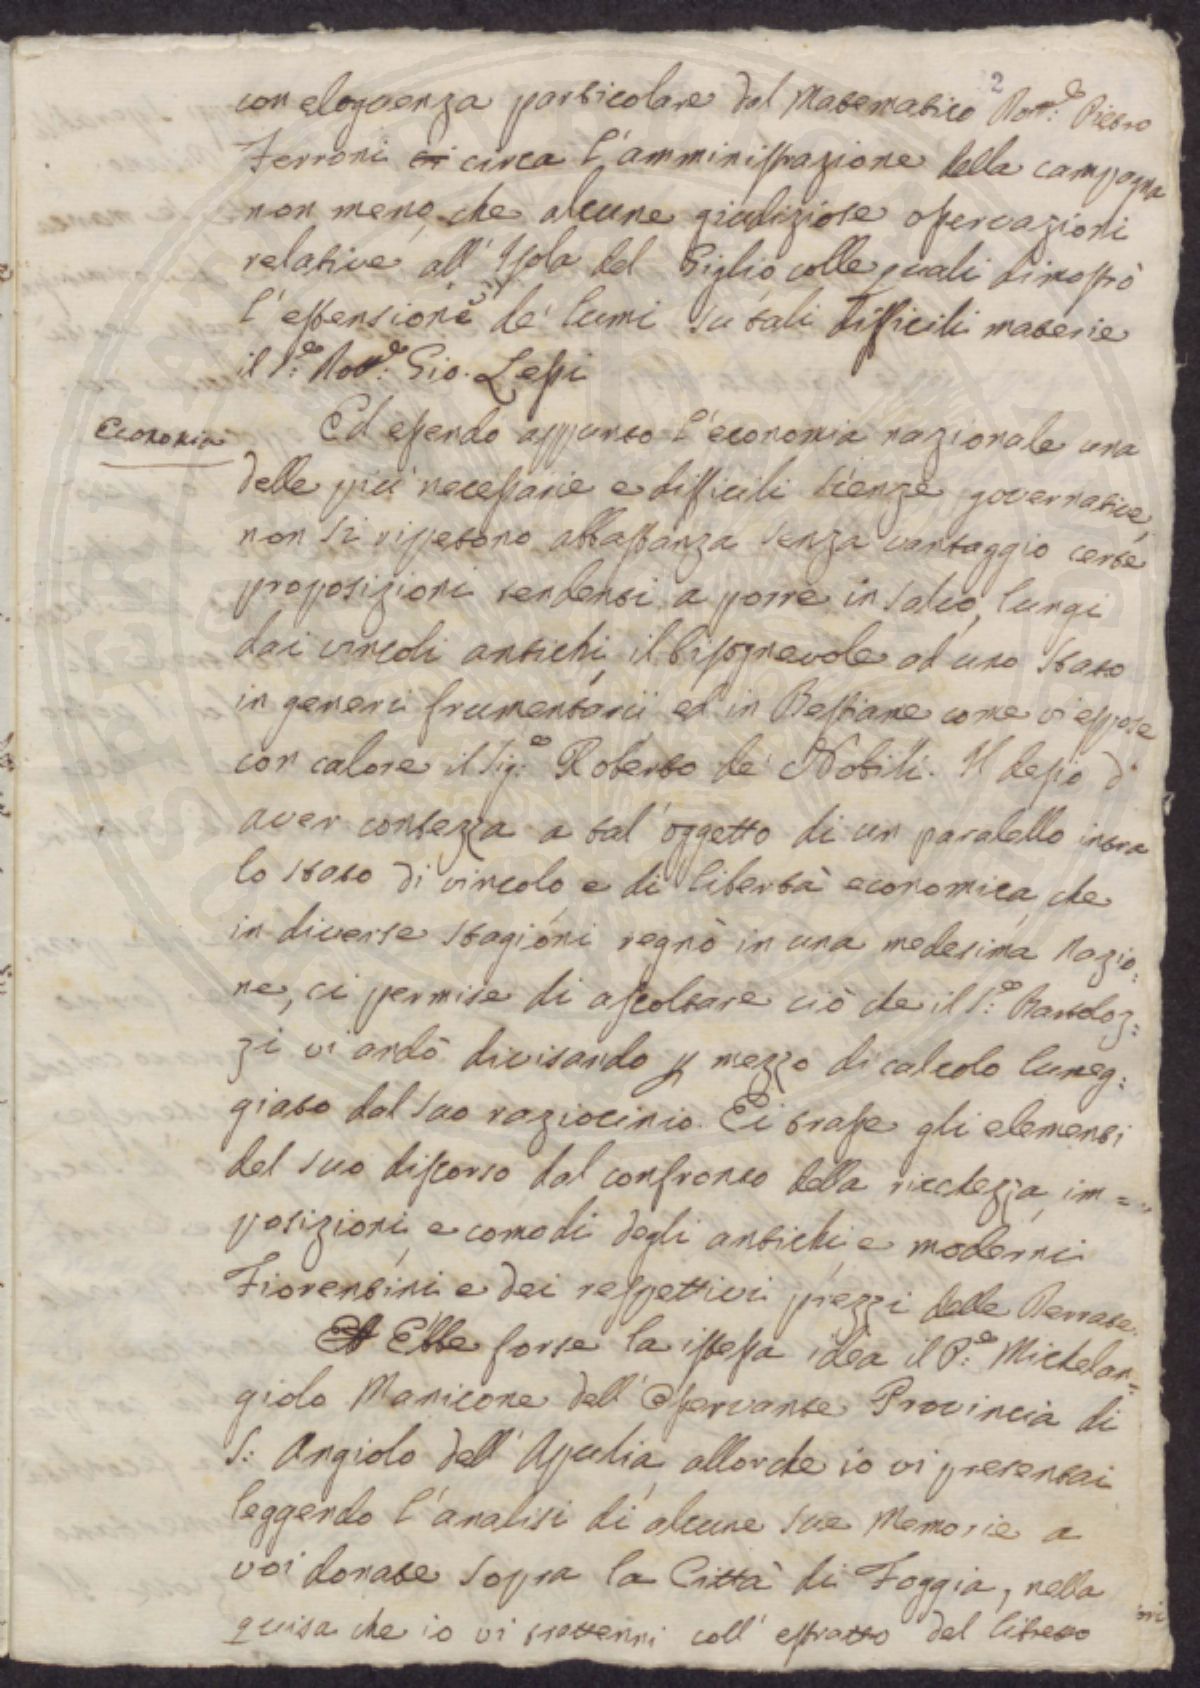 2
con eloquenza particolare dal Matematico Dott.e Pietro
Ferroni circa l'amministrazione della campagna
non meno, che alcune giudiziose osservazioni
relative all'Isola del Giglio colle quali dimostrò
l'estensione de' lumi su tali difficili materie
il S.e Dott.e Gio. Lessi
Economia
Ed essendo appunto l'economia nazionale una
delle più necessarie e difficili scienze governative,
non si ripetono abbastanza senza vantaggio certe
proposizioni tendenti a porre in salvo, lungi
dai vincoli antichi, il bisognevole ad uno stato
in generi frumentarii ed in Bestiame come vi espose
con calore il Sig.e Roberto de' Nobili. Il desio d'
aver contezza a tal oggetto di un paralello intra
lo stato di vincolo e di libertà economica, che
in diverse stagioni regnò in una medesima Nazio:
ne, ci permise di ascoltare ciò che il S.e Bartoloz:
zi vi andò divisando p mezzo di calcolo lumeg:
giato dal suo raziocinio. Ei trasse gli elementi
del suo discorso dal confronto della ricchezza, im=
posizioni, e comodi degli antichi, e moderni
Fiorentini e dei respettivi prezzi delle Derrate.
Ebbe forse la istessa idea il P.e Michelan=
giolo Manicone dell'Osservante Provincia di
S: Angiolo dell'Apulia, allorche io vi presentai
leggendo l'analisi di alcune sue Memorie a
voi donate sopra la Città di Foggia, nella
guisa che io vi trattenni coll'estratto del libretto